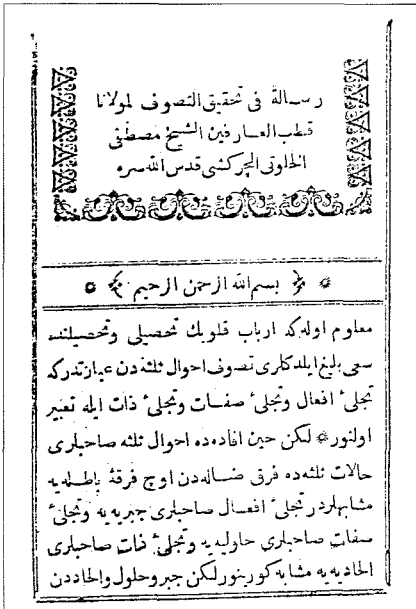 رسالة فى تحقيق التصوف لمولانا
قطب العارفين الشيخ مصطفى
الخلوتى الچركشى قدس الله سره
بسم الله الرحمن الرحيم
معلوم اوله كه ارباب قلوبك تحصيلى وتحصيلنده
سعى بليغ ايلدكلرى تصوف احوال ثلثه دن عبارتدركه
تجلئ افعال وتجلئ صفات وتجلئ ذات ايله تعبير
اولنور لكن حين افاده ده احوال ثلثه صاحبلرى
حالات ثلثه ده فرق ضاله دن اوچ فرقۀ باطله يه
مشابهلردر تجلئ افعال صاحبلرى جبريه يه وتجلئ
صفات صاحبلرى حلوليه يه وتجلئ ذات صاحبلرى
الحاديه يه مشابه كورينور لكن جبر وحلول والحاددن